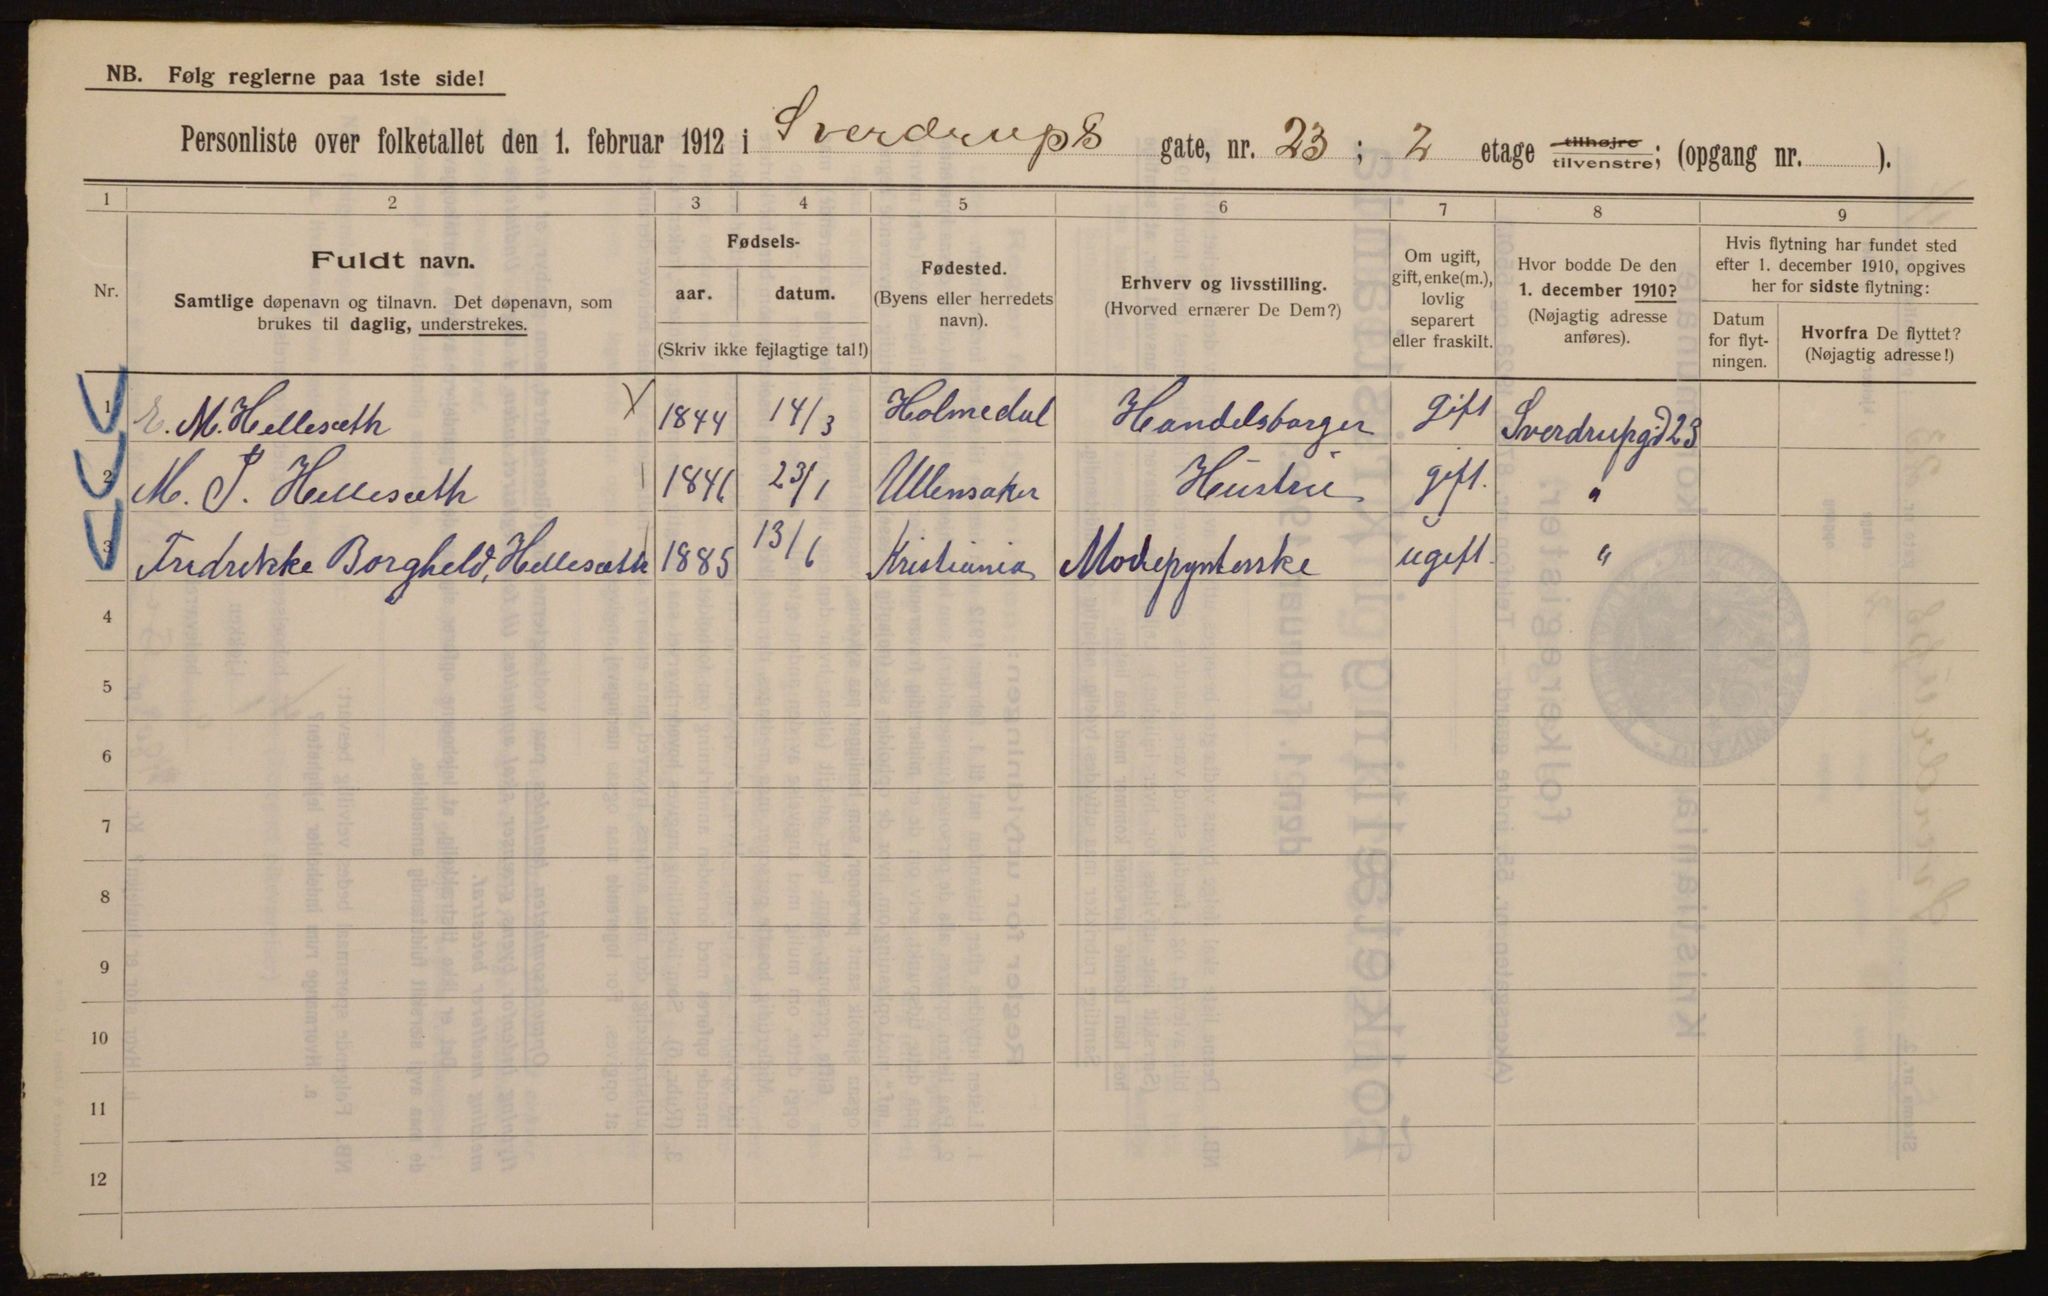 NB. Følg reglerne paa 1ste side!
Personliste over folketallet den 1. februar 1912 i Sverdrups gate, nr. 23 ; 2 etage tilhøjre tilvenstre; (opgang nr. ).
1 2 3 4 5 6 7 8 9
Nr.
Fuldt navn.
Samtlige døpenavn og tilnavn. Det døpenavn, som
brukes til daglig, understrekes.
Fødsels-
aar. datum.
(Skriv ikke fejlagtige tal!)
Fødested.
(Byens eller herredets
navn).
Erhverv og livsstilling.
(Hvorved ernærer De Dem?)
Om ugift,
gift, enke(m.),
lovlig
separert
eller fraskilt.
Hvor bodde De den
1. december 1910?
(Nøjagtig adresse
anføres).
Hvis flytning har fundet sted
efter 1. december 1910, opgives
her for sidste flytning:
Datum
for flyt-
ningen.
Hvorfra De flyttet?
(Nøjagtig adresse!)
1 E. M. Hellesæth 1844 14/3 Holmedal Handelsborger gift Sverdrupgd 23
2 M. P. Hellesæth 1846 23/1 Ullensaker Hustru gift. "
3 Fredrikke Borgheld, Hellesæth 1885 13/6 Kristiania Modepynterske ugift "
4
5
6
7
8
9
10
11
12